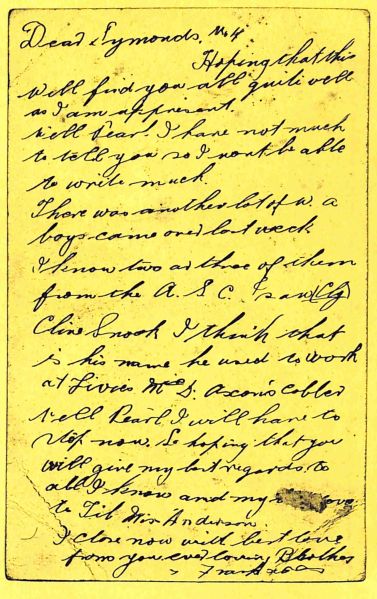 Dear Symonds, No 4
Hoping that this
Will find you all quite well
as I am appresent.
Well Pearl I have not much
to tell you so I wont be able
to write much.
There was another lot of W. A
boys came over last week
I know two or three of them
from the A. S. C. I saw
Clive Snook I think that
is his name he used to work
at Livies Axon's Cobbler
Well Pearl I will have to
stop now. So hoping that you
will give my last regards to
all I know and my love
to Tib Mrs Anderson.
I close now with best love
from your ever loving Brother
Frank xxx